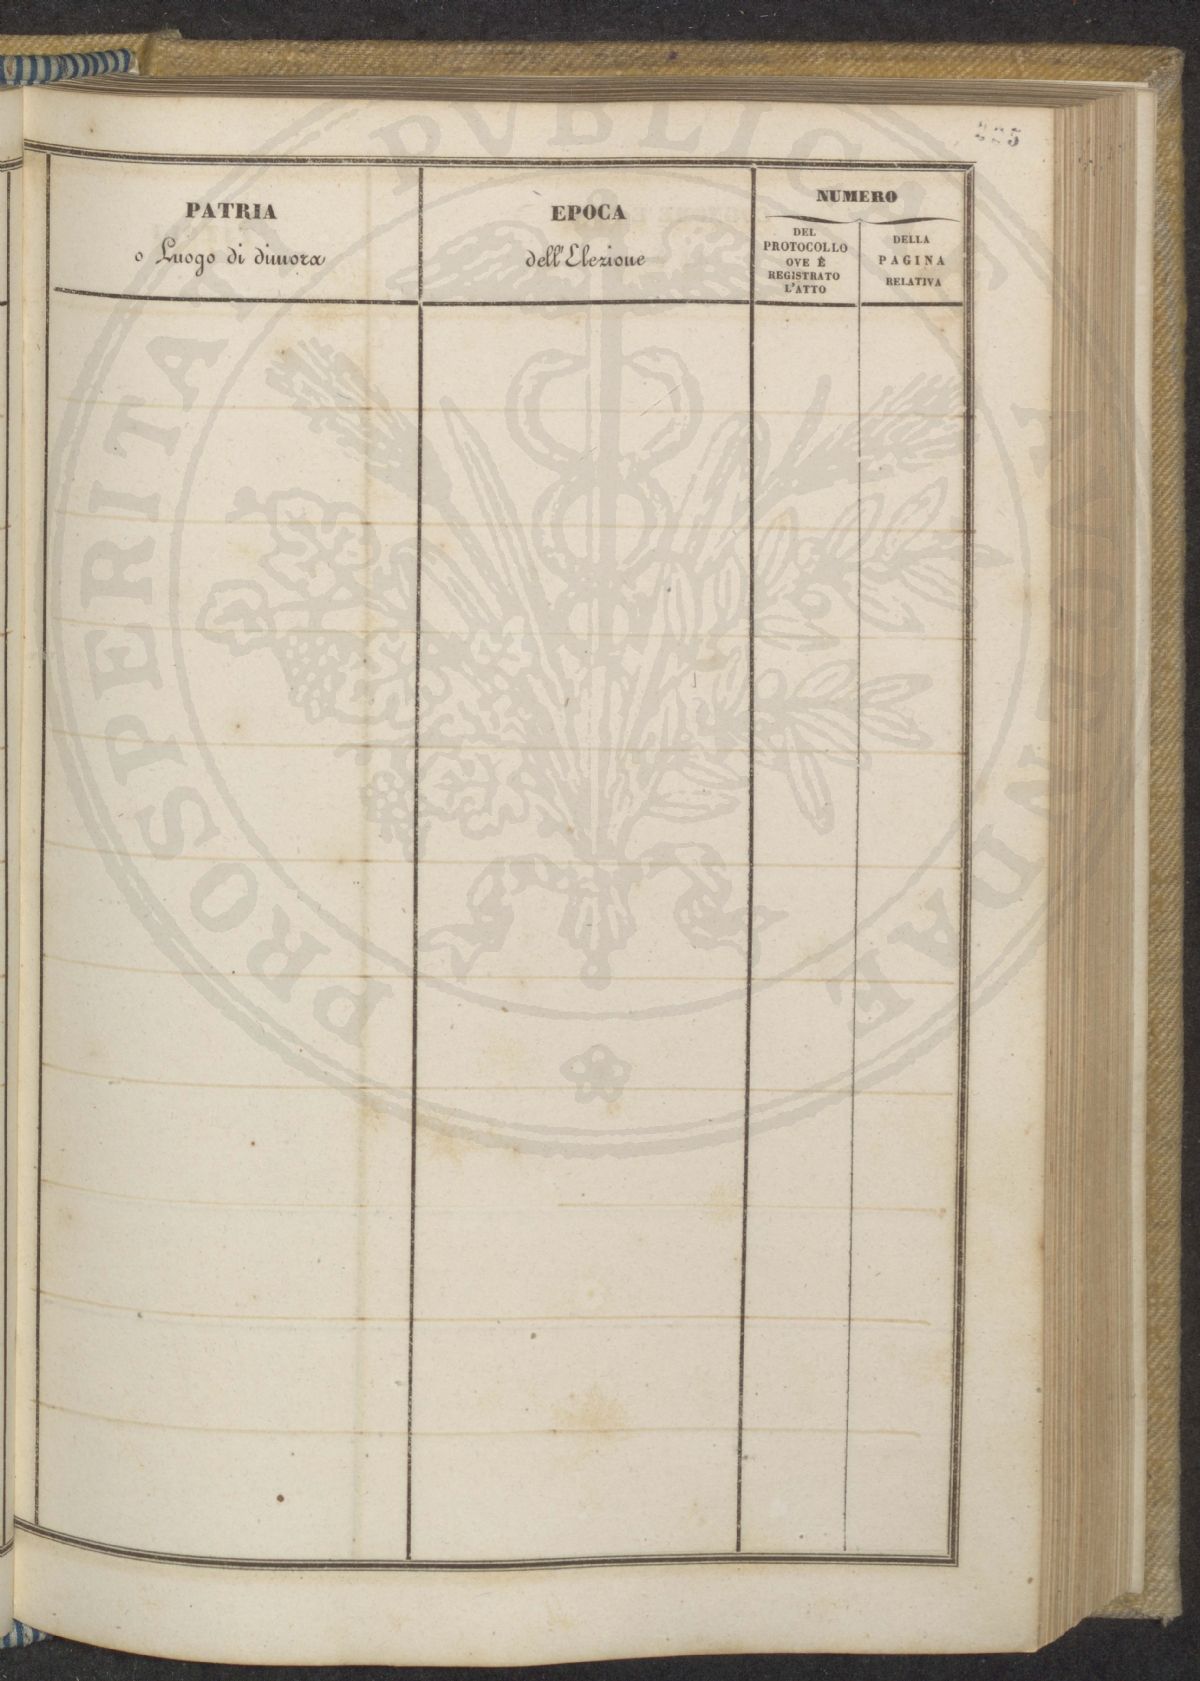 225
PATRIA
o Luogo di dimora
EPOCA
dell'Elezione
NUMERO
DEL
PROTOCOLLO
OVE È
REGISTRATO
L'ATTO
DELLA
PAGINA
RELATIVA
PROSPERITATI PVBLICAE AVGENDAE